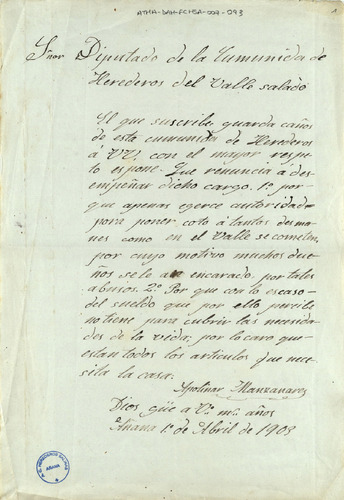 ATHA-DAH-FCHSA-007-093
Señor Diputado de la Cumunida de
Herederos del Valle salado
El que suscribe, guarda caños
de esta cumunida de Herederos
á VV. con el mayor respe
to espone. Que renuncia á des
empeñar dicho cargo. 1º por
que apenas egerce autoridad
para poner coto á tantos desma
nes como en el Valle se cometen,
por cuyo motivo muchos due
ños se le an encarado por tales
abusos. 2º Por que con lo escaso
del sueldo que por ello percibe
no tiene para cubrir las necesida
des de la vida; por lo caro que
estan todos los articulos que nece
sita la casa.
Apolinar Manzanares
Dios güe a V. mˢ años
Añana 1º de Abril de 1908
AÑANA